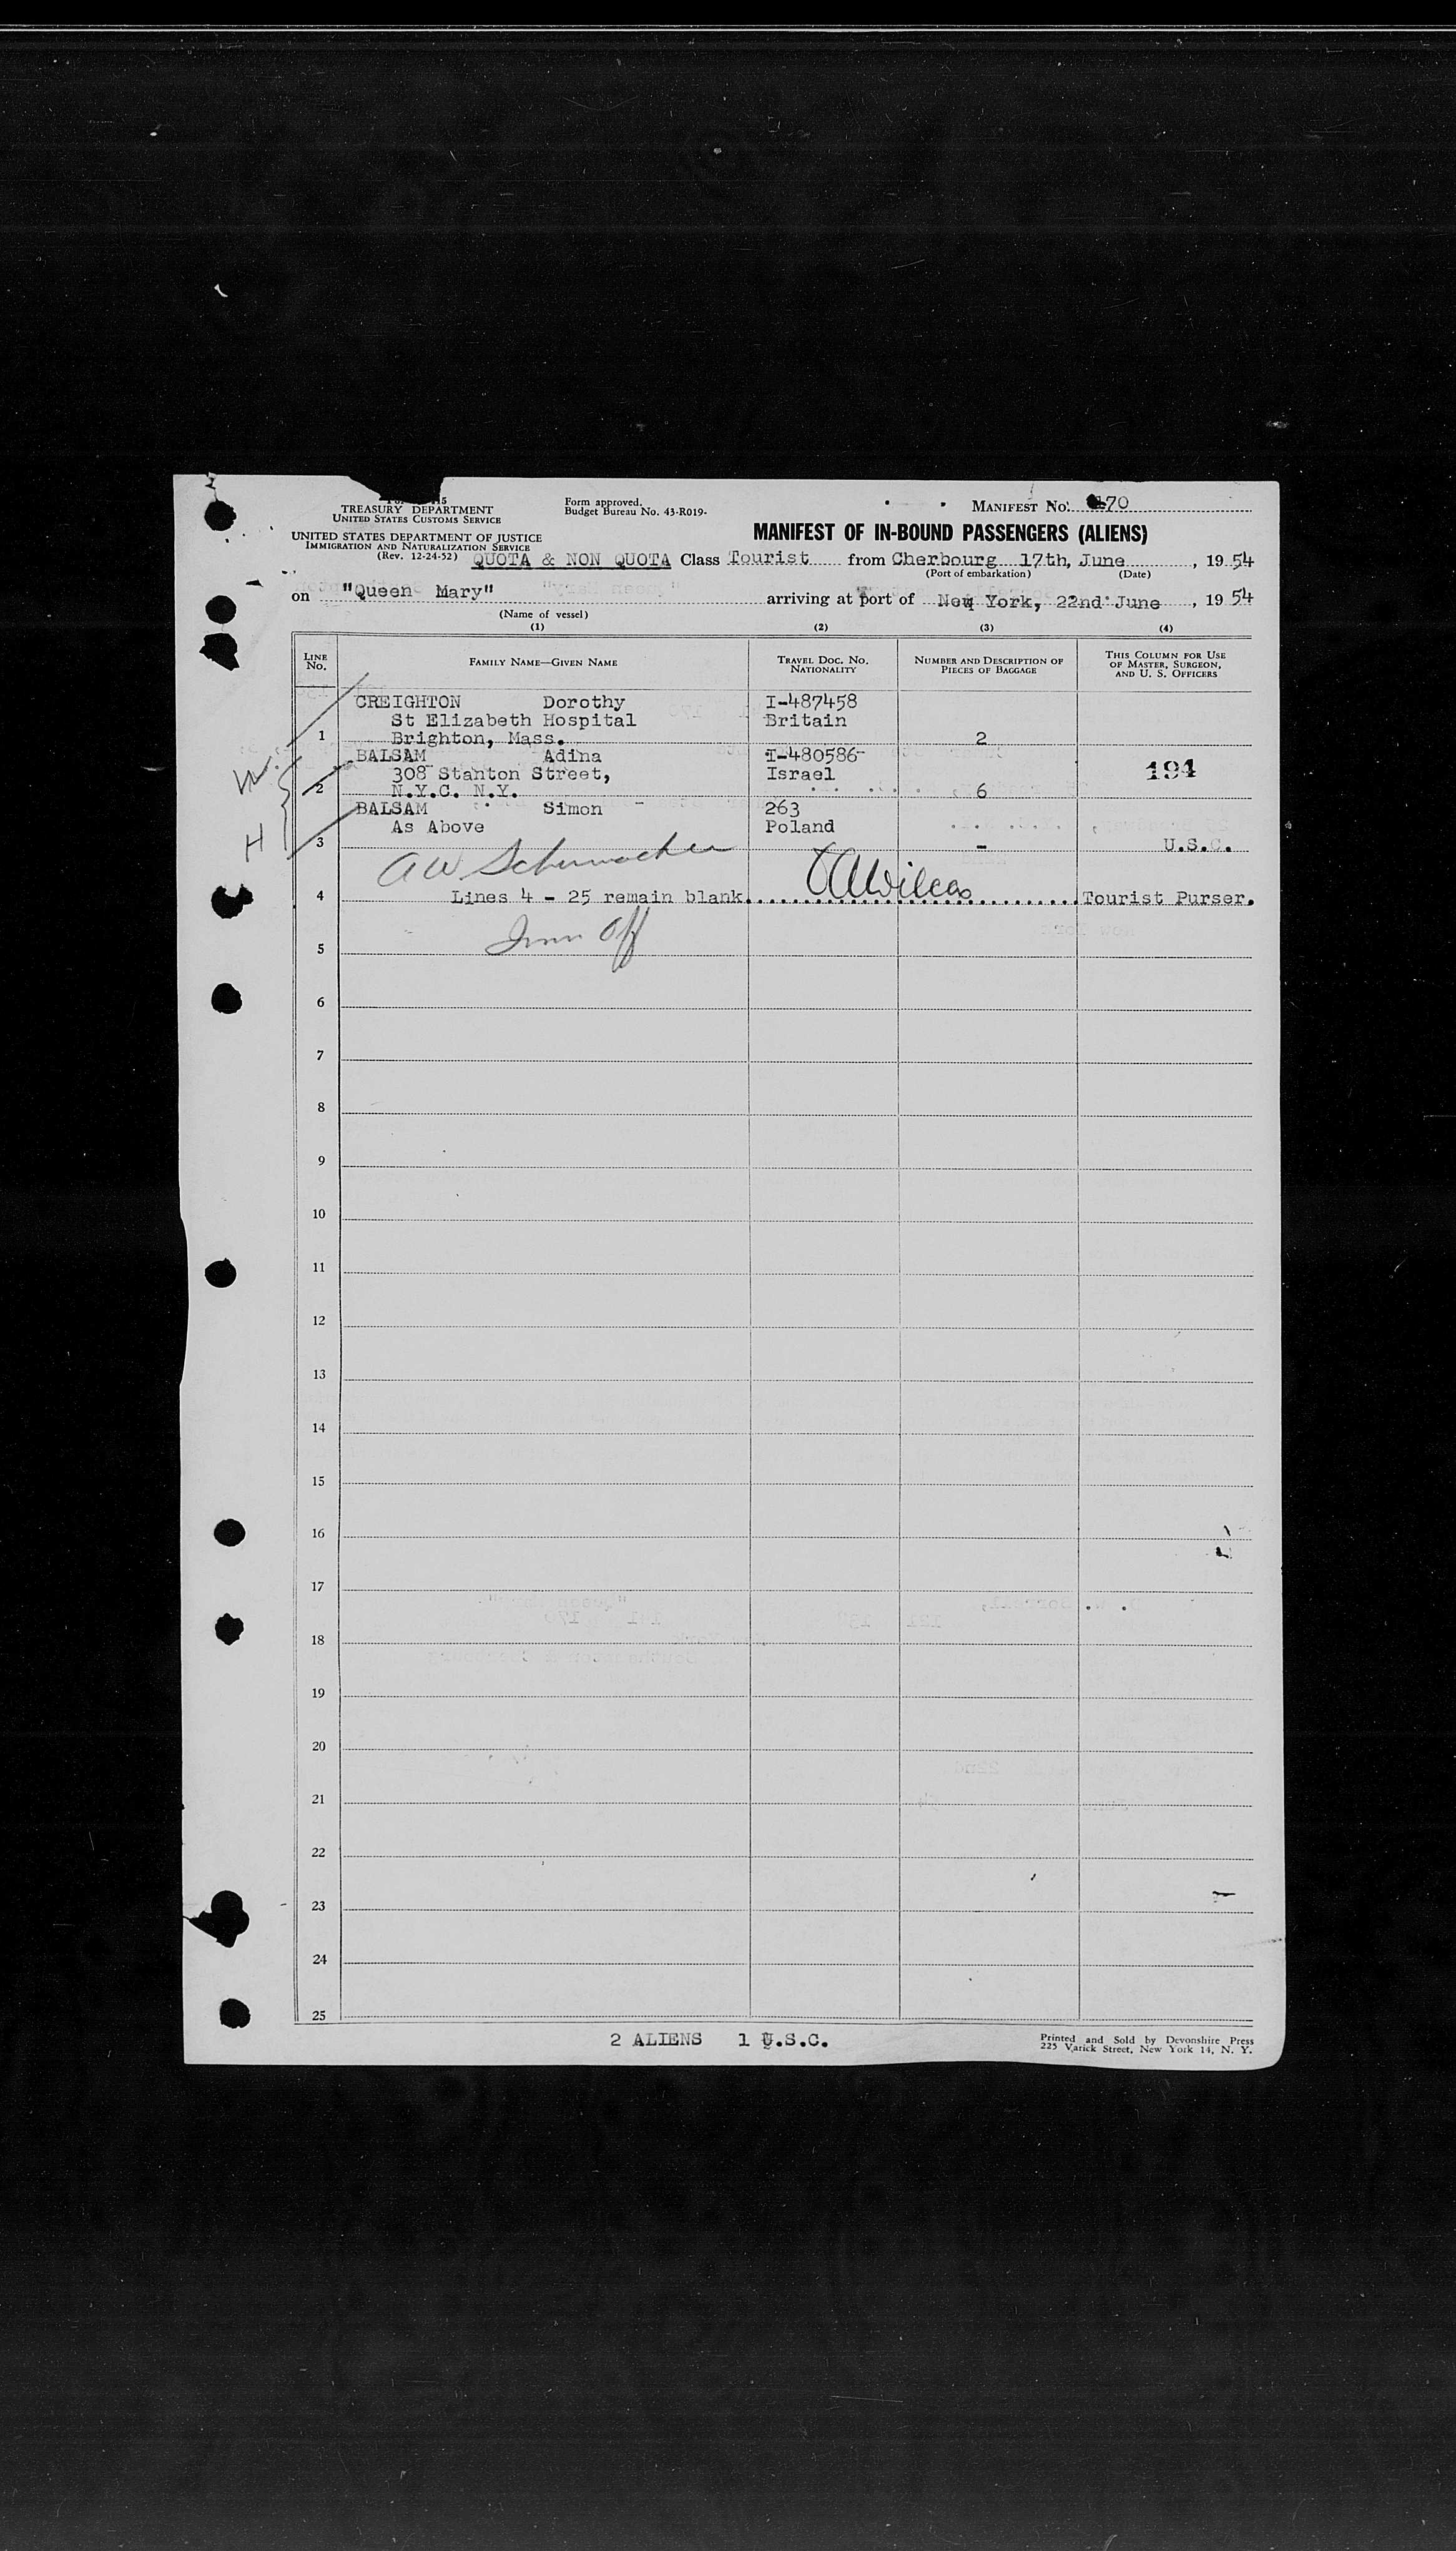 TREASURY DEPARTMENT
UNITED STATES CUSTOMS SERVICE
UNITED STATES DEPARTMENT OF JUSTICE
IMMIGRATION AND NATURALIZATION SERVICE
(Rev. 12-24-52)
Form approved.
Budget Bureau No. 43-R019-
MANIFEST NO. 170
MANIFEST OF IN-BOUND PASSENGERS (ALIENS)
QUOTA & NON QUOTA Class Tourist from Cherbourg 17th, June, 19 54
(Port of embarkation) (Date)
on "Queen Mary" arriving at port of New York, 22nd June, 19 54
(Name of vessel)
(1) (2) (3) (4)
LINE NO. FAMILY NAME—GIVEN NAME TRAVEL DOC. NO. NATIONALITY NUMBER AND DESCRIPTION OF PIECES OF BAGGAGE THIS COLUMN FOR USE OF MASTER, SURGEON, AND U. S. OFFICERS
CREIGHTON Dorothy I-487458
St Elizabeth Hospital Britain
1 Brighton, Mass. 2
BALSAM Adina I-480586
308 Stanton Street, Israel 194
2 N.Y.C. N.Y. 6
W
BALSAM Simon 263
As Above Poland
H
3 - U.S.C.
A W Schumacher
4 Lines 4 - 25 remain blank Tourist Purser.
Imm Off
5
6
7
8
9
10
11
12
13
14
15
16
17
18
19
20
21
22
23
24
25
2 ALIENS 1 U.S.C.
Printed and Sold by Devonshire Press
225 Varick Street, New York 14, N. Y.